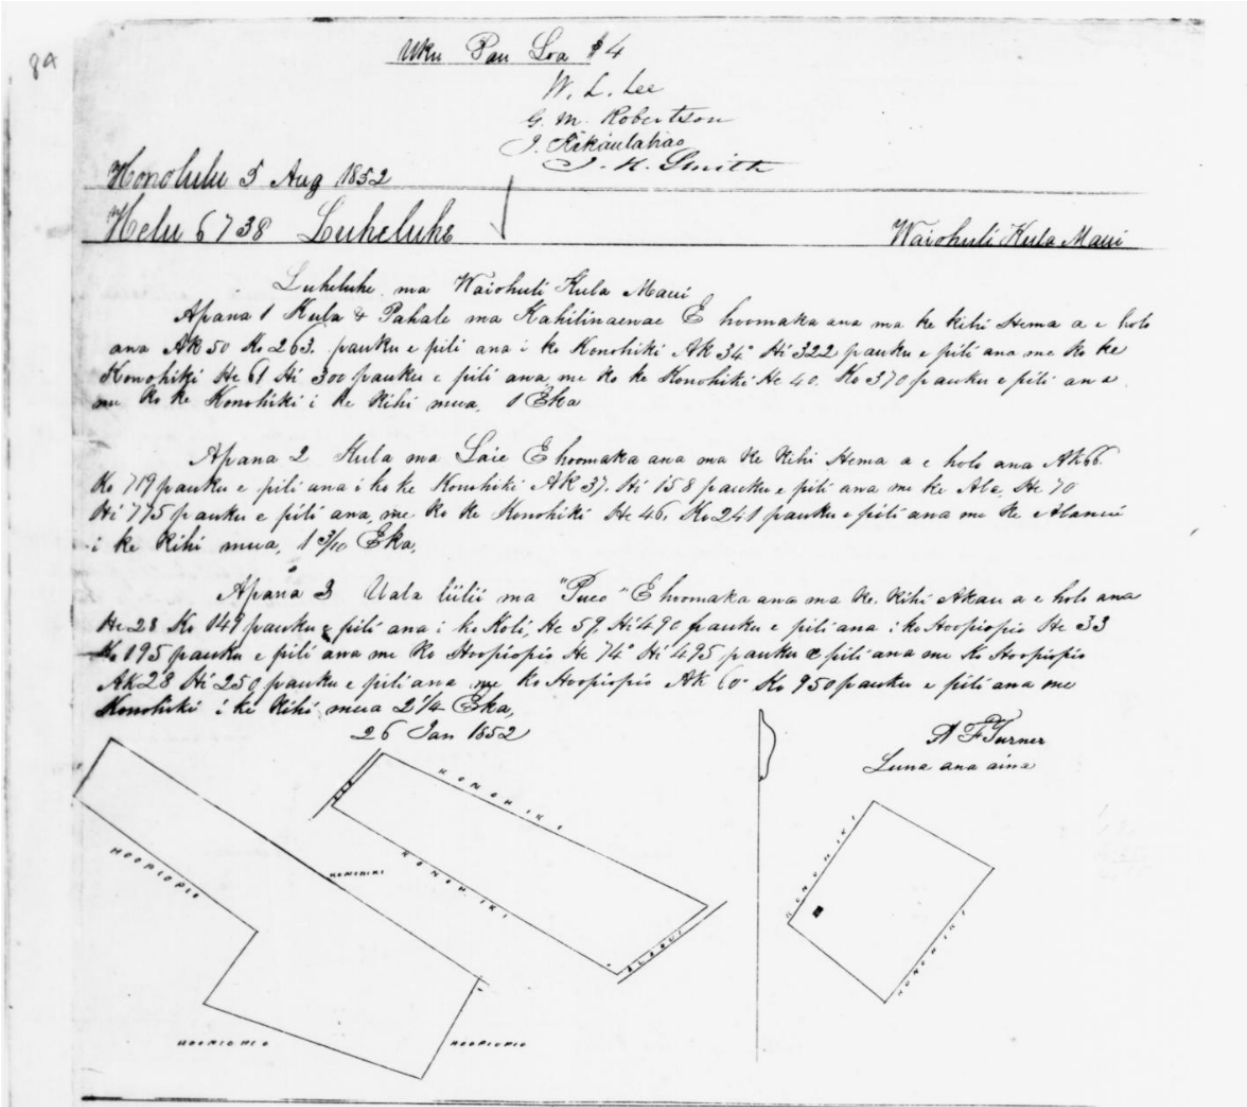 89
Uku Pau Loa $4
W. L. Lee
G. M. Robertson
J. Kekaulahao
J. H. Smith
Honolulu 5 Aug 1852
Helu 6738 Luheluhe Waiohuli Kula Maui
Luheluhe ma Waiohuli Kula Maui
Apana 1 Kula & Pahale ma Kahilinaenae E hoomaka ana ma ke kihi Hema a e holo
ana Ak 50 Ko 263. pauku e pili ana i ko Konohiki Ak 34° Hi 322 pauku e pili ana me ko ke
Konohiki He 61 Hi 300 pauku e pili ana me ko ke Konohiki He 40. Ko 370 pauku e pili ana
me ko ke Konohiki i ke Kihi mua, 1 Eka
Apana 2 Kula ma Laie E hoomaka ana ma ke Kihi Hema a e holo ana Ak 66.
Ko 719 pauku e pili ana i ko ke Konohiki Ak 37. Hi 158 pauku e pili ana me ke Ala, He 70
Hi 775 pauku e pili ana, me ko ke Konohiki He 46. Ko 241 pauku e pili ana me ke Alanui
i ke Kihi mua, 1 3/10 Eka,
Apana 3 Uala liilii ma "Pueo" E hoomaka ana ma ke. Kihi Akau a e holo ana
He 28 Ko 149 pauku e pili ana i ko Koli, He 59, Hi 490 pauku e pili ana i ko Hoopiopio He 33
Ko 195 pauku e pili ana me ko Hoopiopio He 74° Hi 495 pauku e pili ana me ko Hoopiopio
Ak 28 Hi 250 pauku e pili ana me ko Hoopiopio Ak 60° Ko 950 pauku e pili ana me
Konohiki i ke Kihi mua 2 1/4 Eka,
26 Jan 1852
A F Turner
Luna ana aina
KONOHIKI
KONOHIKI
ALA
ALANUI
HOOPIOPIO
KONOHIKI
HOOPIOPIO
HOOPIOPIO
KONOHIKI
KONOHIKI